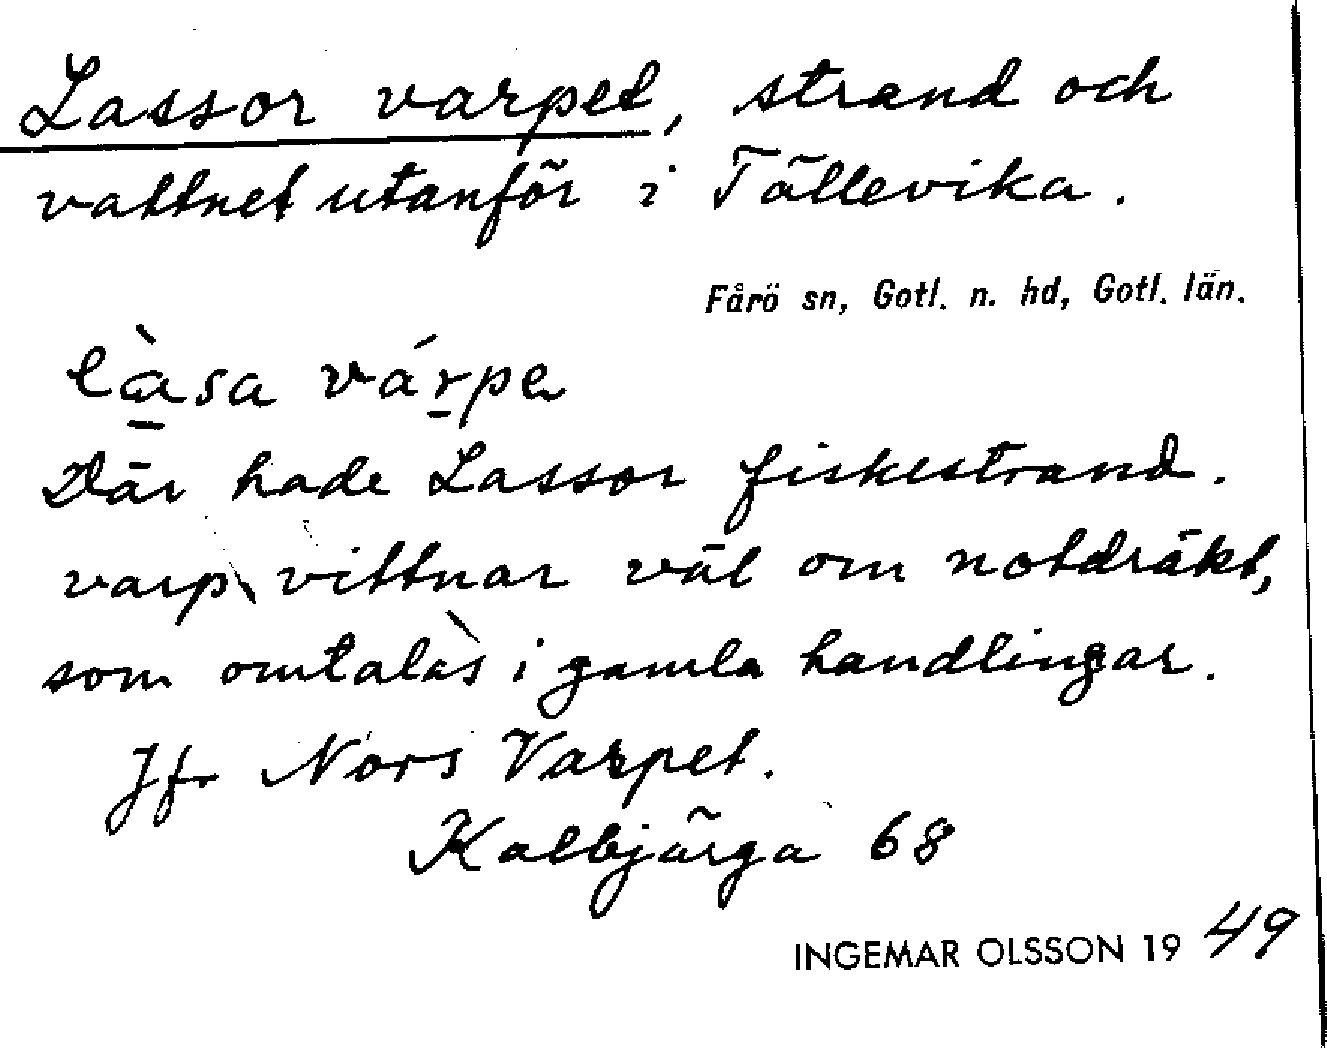 Lassor varpet, strand och
vattnet utanför i Tällevika.
Fårö sn, Gotl. n. hd, Gotl. län.
làsa várpe
Där hade Lassor fiskestrand.
varp vittnar väl om notdräkt,
som omtalas i gamla handlingar.
Jfr Nors Varpet.
Kalbjärga 68
INGEMAR OLSSON 1949